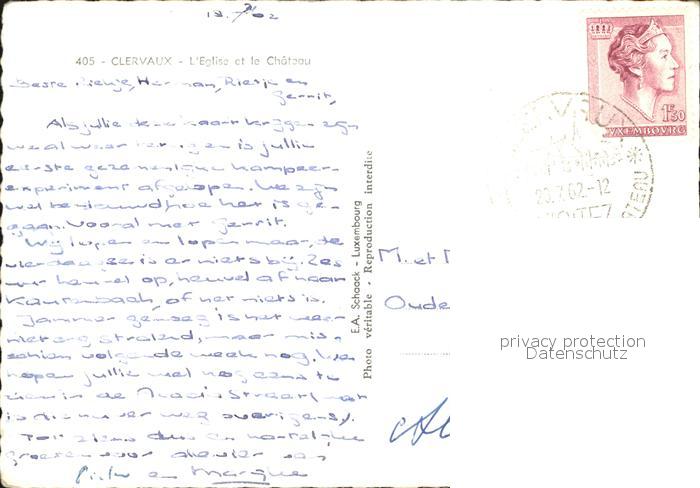 405 - CLERVAUX - L'Eglise et le Château
Beste Herman, en
Gerrit,
Als jullie deze kaart krijgen zijn
we al weer is jullie
eerste gezamenlijke kampeer-
experiment afgelopen. We zijn
wel benieuwd hoe het is ge-
gaan. Vooral met Gerrit.
Wij lopen en lopen maar, de
vierdaagse is er niets bij. Zes
uur heuvel op, heuvel af naar
Kautenbach, of het niets is.
Jammer genoeg is het weer
niet erg stralend, maar mis-
schien volgende week nog. We
hopen jullie wel nog eens te
zien in de Straat, wat
is die nu ver weg overigens!
Tot ziens dus en hartelijke
groeten voor allevier van
en Margue
E.A. Schaack - Luxembourg
Photo véritable - Reproduction interdite
1F50
LUXEMBOURG
20.7.62-12
VISITEZ
M. et M
Oude
privacy protection
Datenschutz